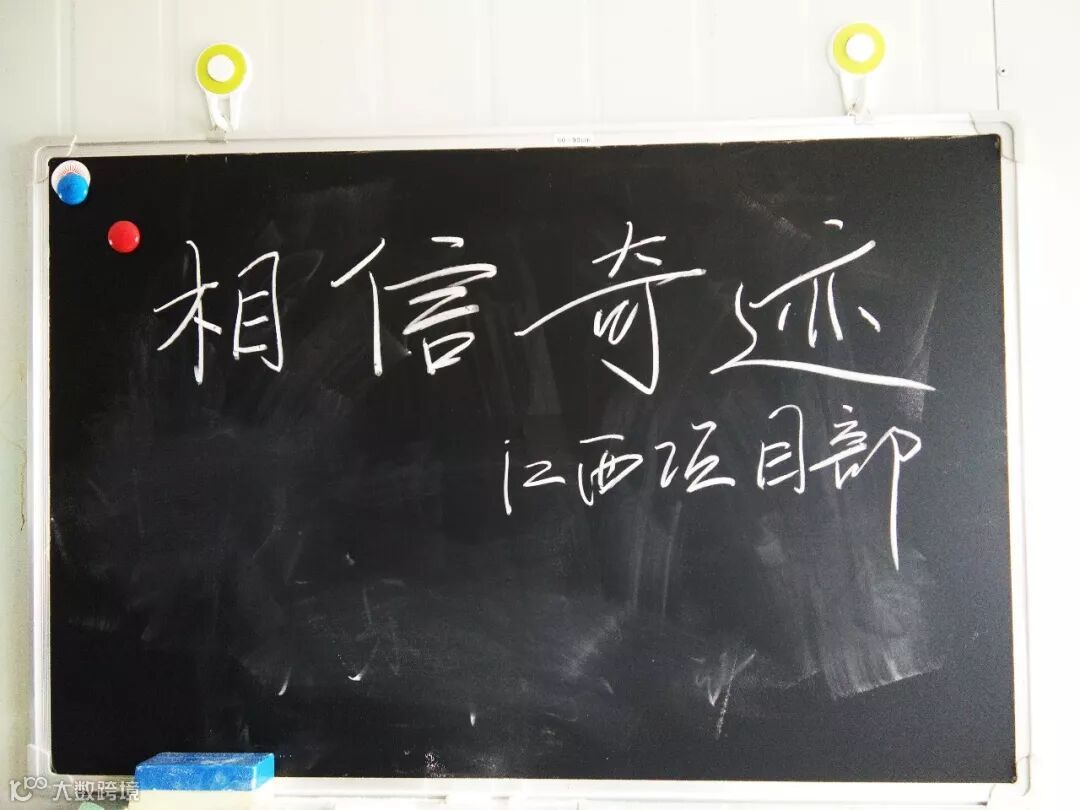 相信奇迹
江西项目部
大数跨境